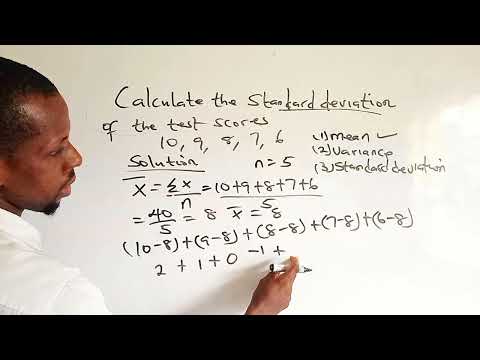 Calculate the Standard deviation
of the test scores
10, 9, 8, 7, 6
(1) mean ✓
(2) Variance
(3) Standard deviation
Solution
n = 5
x̄ = Σx/n = 10+9+8+7+6/5
= 40/5 = 8 x̄ = 8
(10-8)+(9-8)+(8-8)+(7-8)+(6-8)
2 + 1 + 0 -1 +